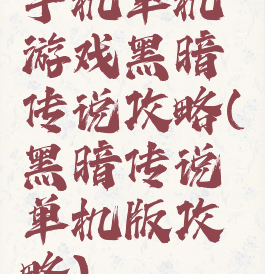 手机单机
游戏黑暗
传说攻略(
黑暗传说
单机版攻
略)